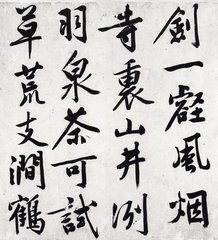 劍一壑風烟
寺裏山井洌
羽泉茶可試
草荒支澗鶴